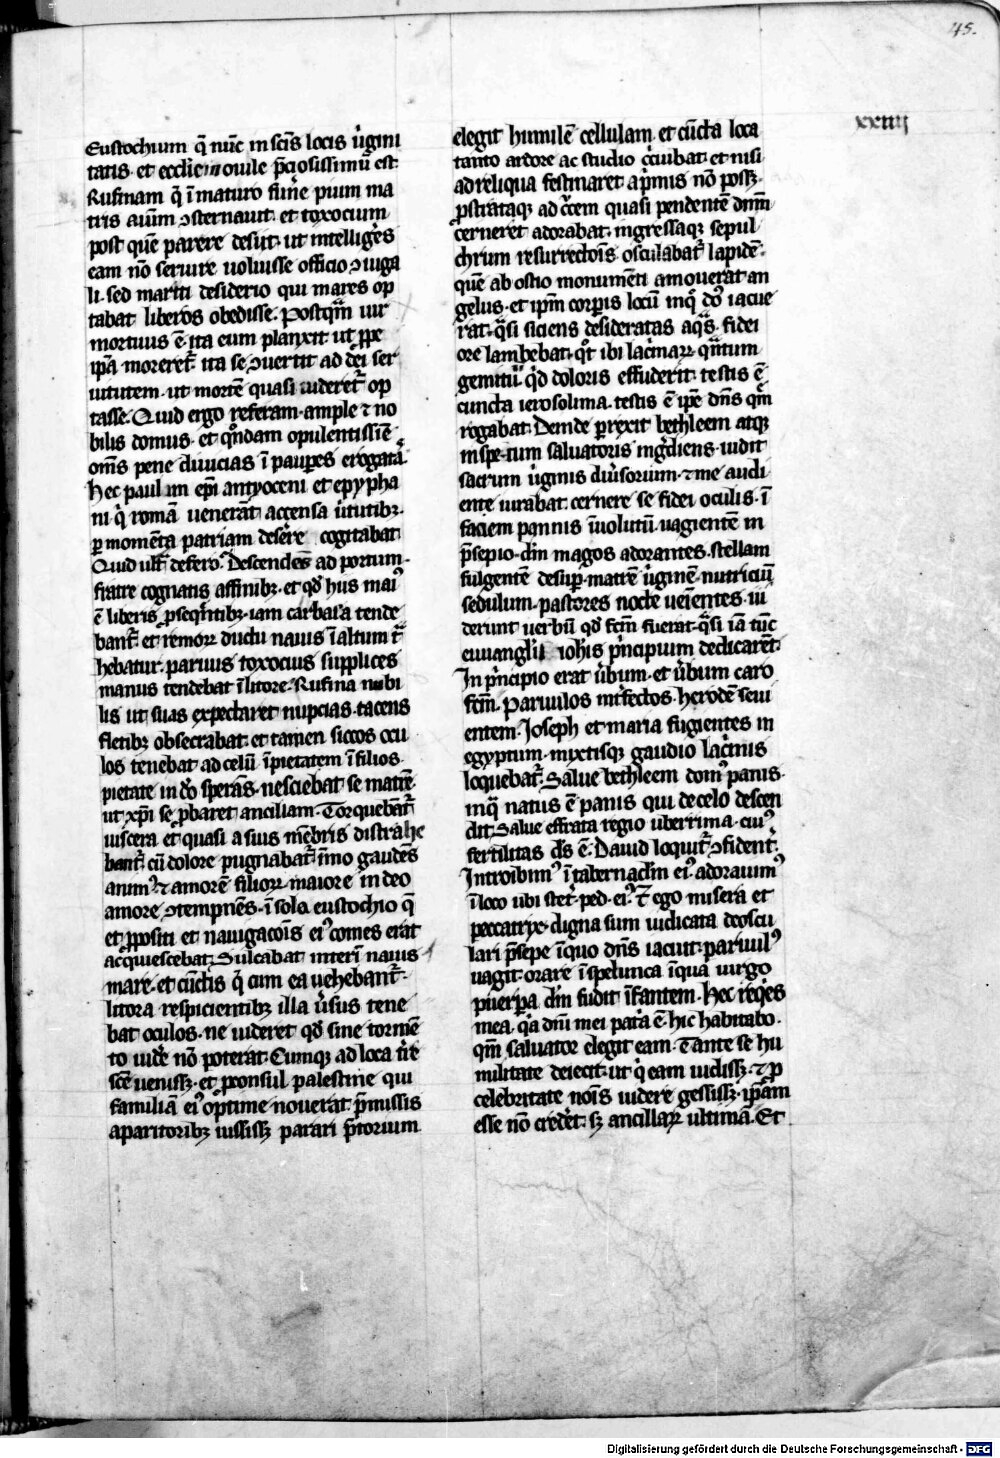 45.
xxiiij
Eustochium q̄ nūc in scīs locis ṽgini
tatis et ecclie mouile p̄ciosissimū est
Rufinam q̄ īmaturo funē pium ma
tris aīum ɔsternauit et toxocium
post quē parere desijt ut intelligēs
eam nō seruire uoluisse officio ɔiuga
li. sed mariti desiderio qui mares op
tabat liberos obedisse. Postqm̄ uir
mortuus ē ita eum planxit ut ꝓpe
ip̄a moreret᷑ ita se ɔuertit ad dei ser
uitutem ut mortē quasi uideret᷑ op
tasse. Quid ergo referam ample ⁊ no
bilis domus et qn̄dam opulentissīe
om̄s pene diuicias ī paupes erogatā
hec paulini ep̄i antyoceni et epypha
nij q̄ romā uenerāt accensa ṽtutibꝫ
ꝑ momēta patriam deserē cogitabat
Quid ult᷑ defero. Descendēs ad portum
fratre cognatis affinibꝫ et qd̄ hijs maiꝰ
ē liberis ꝓseqn̄tibꝫ iam carbasa tende
bant᷑ et remoꝝ ductu nauis ī altum ꝑt᷑
hebatur. paruus toxocius supplices
manus tendebat ī litore. Rufina nubi
lis ut suas expectaret nupcias tacens
fletibꝫ obsecrabat et tamen siccos ocu
los tenebat ad celū īpietatem ī filios
pietate in dō sperās nesciebat se matrē
ut xp̄i se ꝓbaret ancillam. Torquebāt᷑
uiscera et quasi a suis mēbris distrahe
bant᷑ cū dolore pugnabat īmo gaudēs
animꝰ ⁊ amorē filioꝝ maiore in deo
amore ɔtempnēs ī sola eustochio q̄
et ꝓpositi et nauigacōis eiꝰ comes erat
acquiescebat. Sulcabat interī nauis
mare et cūctis q̄ cum ea uehebant᷑
litora respicientibꝫ illa ṽsus tene
bat oculos ne uideret qd̄ sine tormē
to uidē nō poterat. Cumqꝫ ad loca t̄re
scē uenissꝫ et ꝓconsul palestine qui
familiā eiꝰ optime nouerat p̄missis
aparitoribꝫ iussissꝫ parari p̄torium
elegit humilē cellulam et cūcta loca
tanto ardore ac studio c̄cuibat et nisi
ad reliqua festinaret a p̄mis nō possꝫ
ꝓstrataqꝫ ad c̄cem quasi pendentē dnm̄
cerneret adorabat ingressaqꝫ sepul
chrum resurrectōis osculabat᷑ lapidē
quē ab ostio monumēti amouerat an
gelus et ip̄m corꝑis locū inq̄ dō iacue
rat q̄si siciens desideratas aqͣs fidei
ore lambebat qͦt ibi lac̄maꝝ qn̄tum
gemituū qͥd doloris effuderit testis ē
cuncta ierosolima. testis ē ip̄e dn̄s qm̄
rogabat. Deinde ꝑrexit bethleem atqꝫ
in specum saluatoris ingͤdiens uidit
sacrum ṽginis diūsorium ⁊ me audi
ente iurabat cernere se fidei oculis ī
faciem pannis īuolutū uagientē in
p̄sepio dm̄ magos adorantes stellam
fulgentē desuꝑ matrē ṽginē nutriciū
sedulum pastores nocte ueīentes ui
derunt uerbū qd̄ fcm̄ fuerat q̄si iā tūc
euuanglij iohis p̄ncipium dedicarēt
In p̄ncipio erat ṽbum et ṽbum caro
fcm̄. Paruulos int̄fectos herodē seui
entem. Joseph et maria fugientes in
egyptum mixtisqꝫ gaudio lac̄mis
loquebat᷑. Salue bethleem domꝰ panis
inq̄ natus ē panis qui de celo descen
dit. Salue effrata regio uberrima cuiꝰ
fertilitas ds̄ ē. Dauid loquit᷑ ɔfident᷑
Introibimꝰ ī tabernaclm̄ eiꝰ adorauimꝰ
ī loco ubi stet᷑ ped eiꝰ. Et ego misera et
peccatrix digna sum iudicata deoscu
lari p̄sepe ī quo dn̄s iacuit paruulꝰ
uagit orare ī spelunca ī qua uirgo
puerpa dm̄ fudit īfantem. Hec reqͥes
mea qͣ dn̄i mei patͥa ē hic habitabo
qm̄ saluator elegit eam. Tante se hu
militate deiecit ut q̄ eam uidissꝫ ⁊ ꝑ
celebritate noīs uidere gestissꝫ ip̄am
esse nō credēt sꝫ ancillaꝝ ultimā. Et
Digitalisierung gefördert durch die Deutsche Forschungsgemeinschaft - DFG